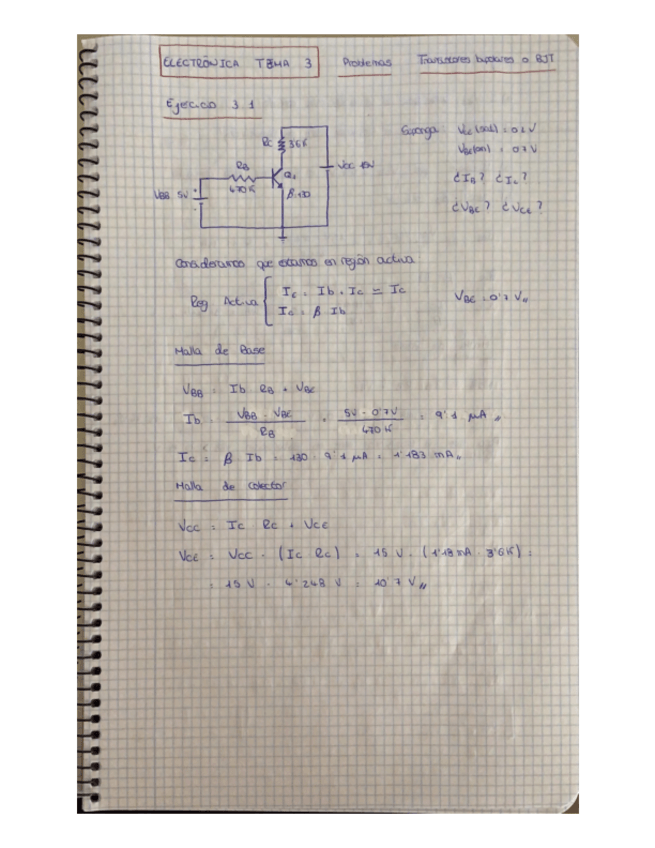 ELECTRÓNICA TEMA 3 Problemas Transistores bipolares o BJT
Ejercicio 3.1
Suponga: Vce(sat) = 0.2V
Vbe(on) = 0.7V
RC 3.6K
RB
470K
Q1
β=130
VCC 15V
VBB 5V
¿IB? ¿Ic?
¿VBE? ¿VCE?
Consideramos que estamos en región activa
Reg Activa
IE = Ib + Ic ≃ Ic
Ic = β Ib
VBE = 0'7 V//
Malla de Base
VBB = Ib RB + VBE
Ib = VBB - VBE / RB = 5V - 0'7V / 470K = 9'1 μA //
Ic = β Ib = 130 · 9'1 μA = 1'183 mA //
Malla de Colector
VCC = Ic RC + VCE
VCE = VCC - (Ic RC) = 15 V - (1'18 mA · 3'6K) =
= 15 V - 4'248 V = 10'7 V //